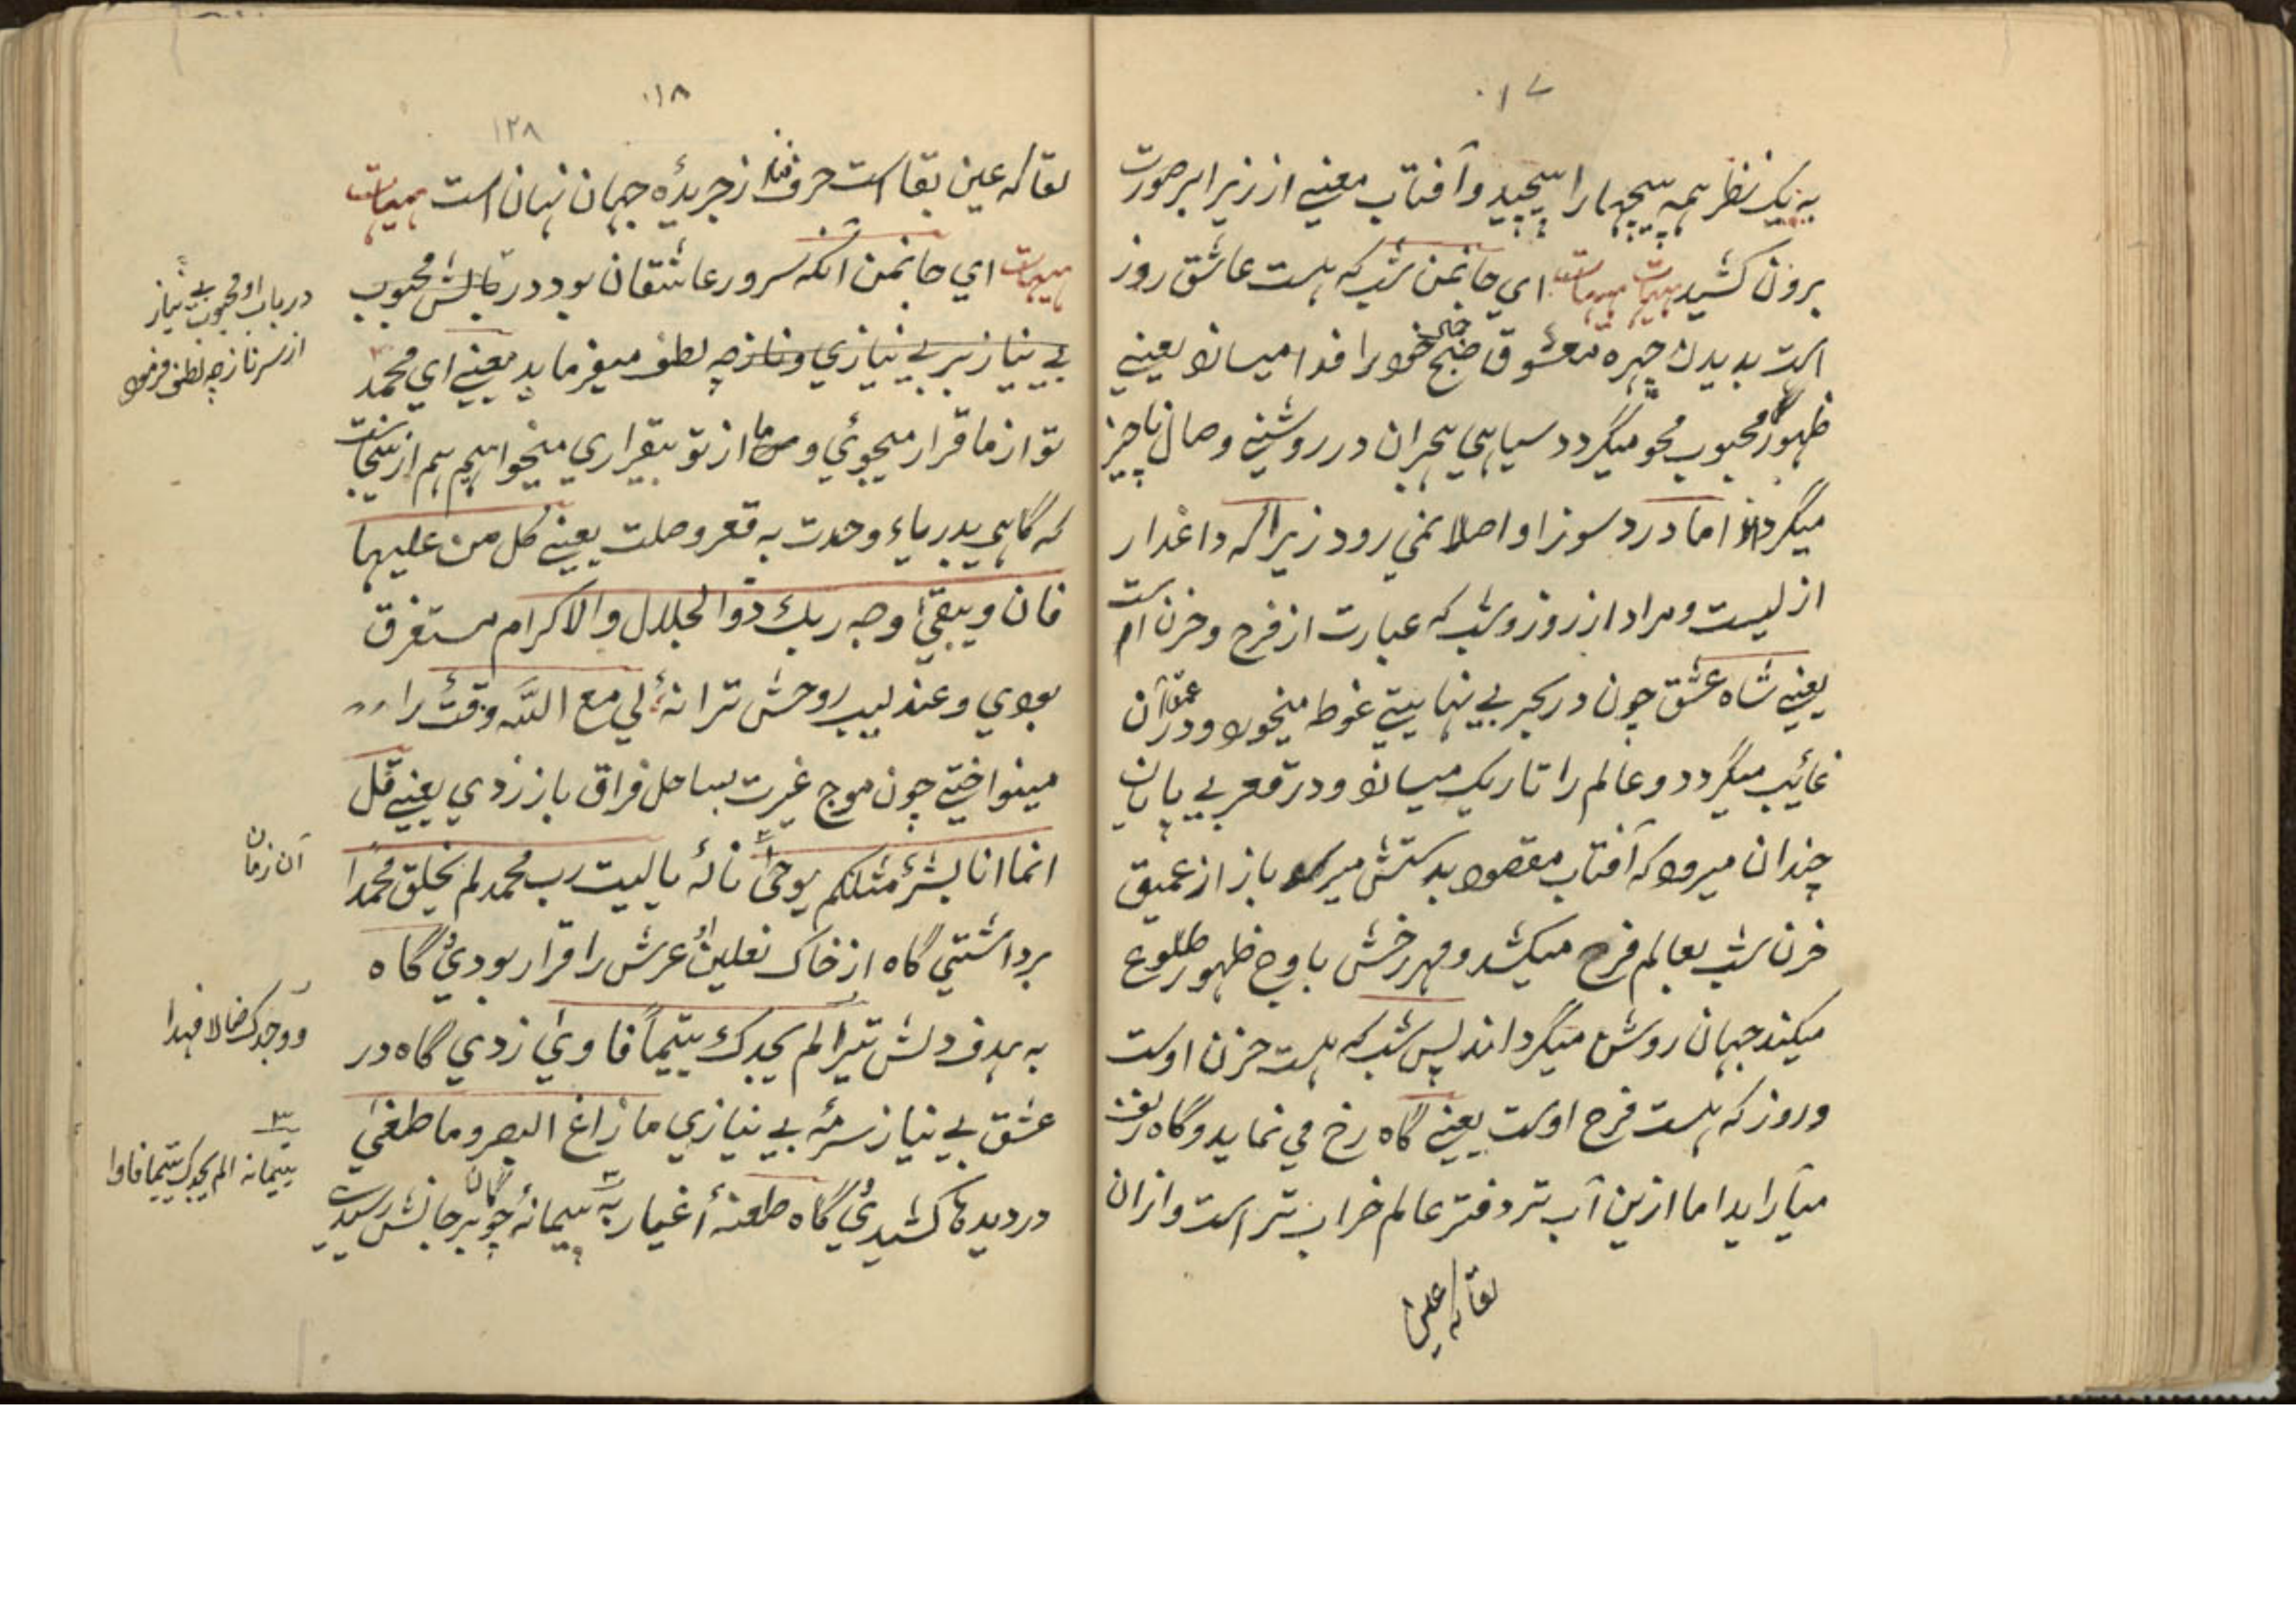 ۱۷
به یک نظر همه پیچها را پیچید و آفتاب معنی از زیر ابر صورت
برون کشید هیهات هیهات ای جانمن شب که هست عاشق روز
است بدیدن چهره معشوق صبح خود را فدا میسازد یعنی
ظهور محبوب محو میگردد سیاهی هجران در روشنی وصال ناچیز
میگردد اما درد سوز او اصلا نمی رود زیرا که داغدار
ازلیست و مراد از روز و شب که عبارت از فرح و خزن است
یعنی شاه عشق چون در بحر بی نهایتی غوط میخورد و در عمق آن
غائب میگردد و عالم را تاریک میسازد و در قعر بی پایان
چندان میرود که آفتاب مقصود بدستش میرسد باز از عمیق
خزن شب بعالم فرح میکشد و مهر رخش باوج ظهور طلوع
میکند جهان روشن میگرداند پس شب که هست حزن اوست
و روز که هست فرح اوست یعنی گاه رخ می نماید و گاه زلف
میآراید اما ازین آب تر دفتر عالم خراب تر است و ازان
لقا که عین
۱۸
۱۲۸
لقا که عین بقا است حرف فنا از جریدهٔ جهان نهان است هیهات
هیهات ای جانمن آنکه سرور عاشقان بود در بابش محبوب
بی نیاز بر بی نیازی و ناز چه لطف میفرماید یعنی ای محمد
تو از ما قرار میجوئی و ما از تو بیقراری میخواهیم هم ازینجاست
که گاهی بدریاء وحدت به قعر وصلت یعنی کل من علیها
فان ویبقی وجه ربک ذو الجلال والاکرام مستغرق
بودی و عندلیب روحش ترانهٔ لی مع الله وقت را
مینواختی چون موج غیرت بساحل فراق باز زدی یعنی قل
انما انا بشر مثلکم یوحی نالهٔ یا لیت رب محمد لم یخلق محمدا
برداشتی گاه از خاک نعلین او عرش را قرار بودی گاه
به هدف دلش تیر الم یجدک یتیما فاوی زدی گاه در
عشق بی نیاز سرمهٔ بی نیازی ما زاغ البصر وما طغی
در دیدها کشیدی گاه طعنهٔ اغیار به پیمانهٔ چوگان بر جانش رسید
در باب او محبوب بی نیاز
از سر ناز چه لطف فرمود
آن زمان
ووجدک ضالا فهدا
۳
یتیمانه الم یجدک یتیما فاوا